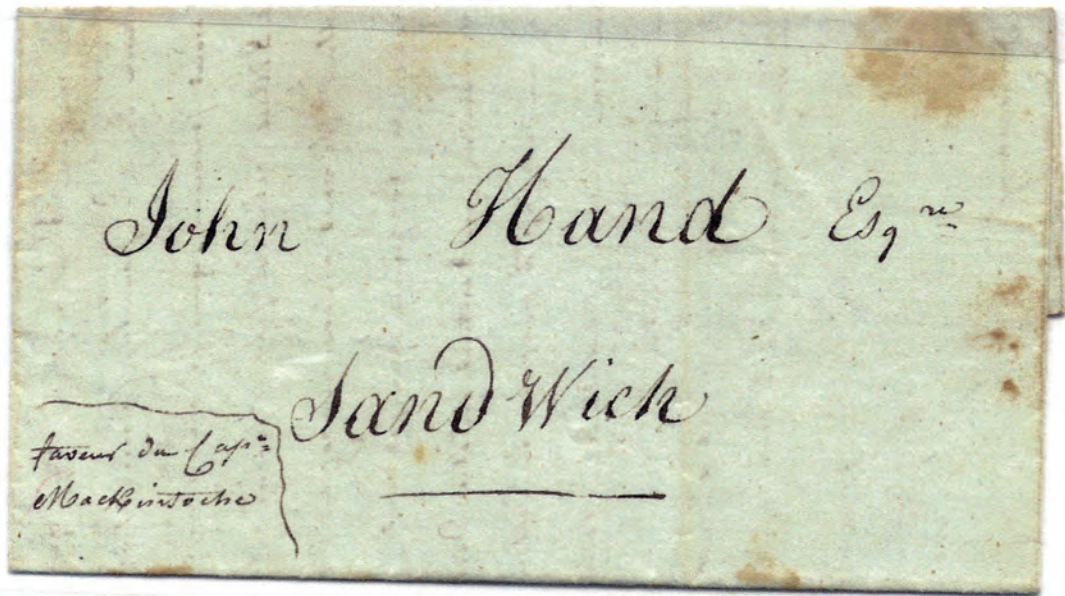 John Hand Esqre
Sand Wich
faveur du Capne
Mackintoche